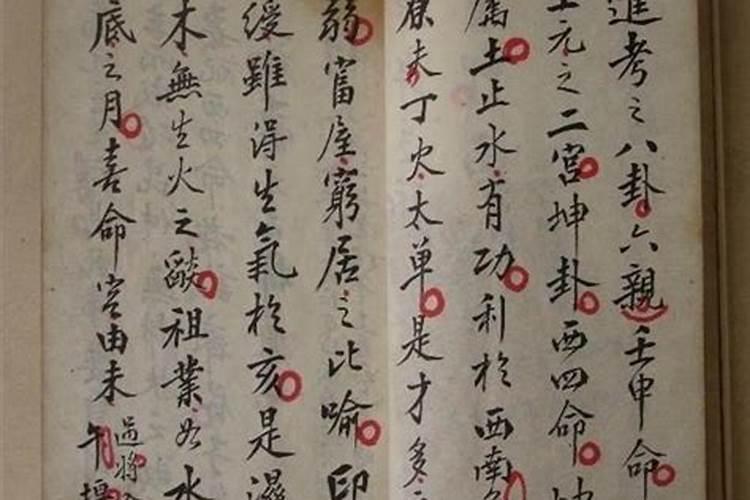 進考之八卦六親壬申命
元之二宮坤卦西四命坤
属土止水有功利於西南
未丁火太單是才多
弱富屋窮居之比喻印
绶雖得生氣於亥是濕
木無生火之燄祖業如水
底之月喜命宫由未午